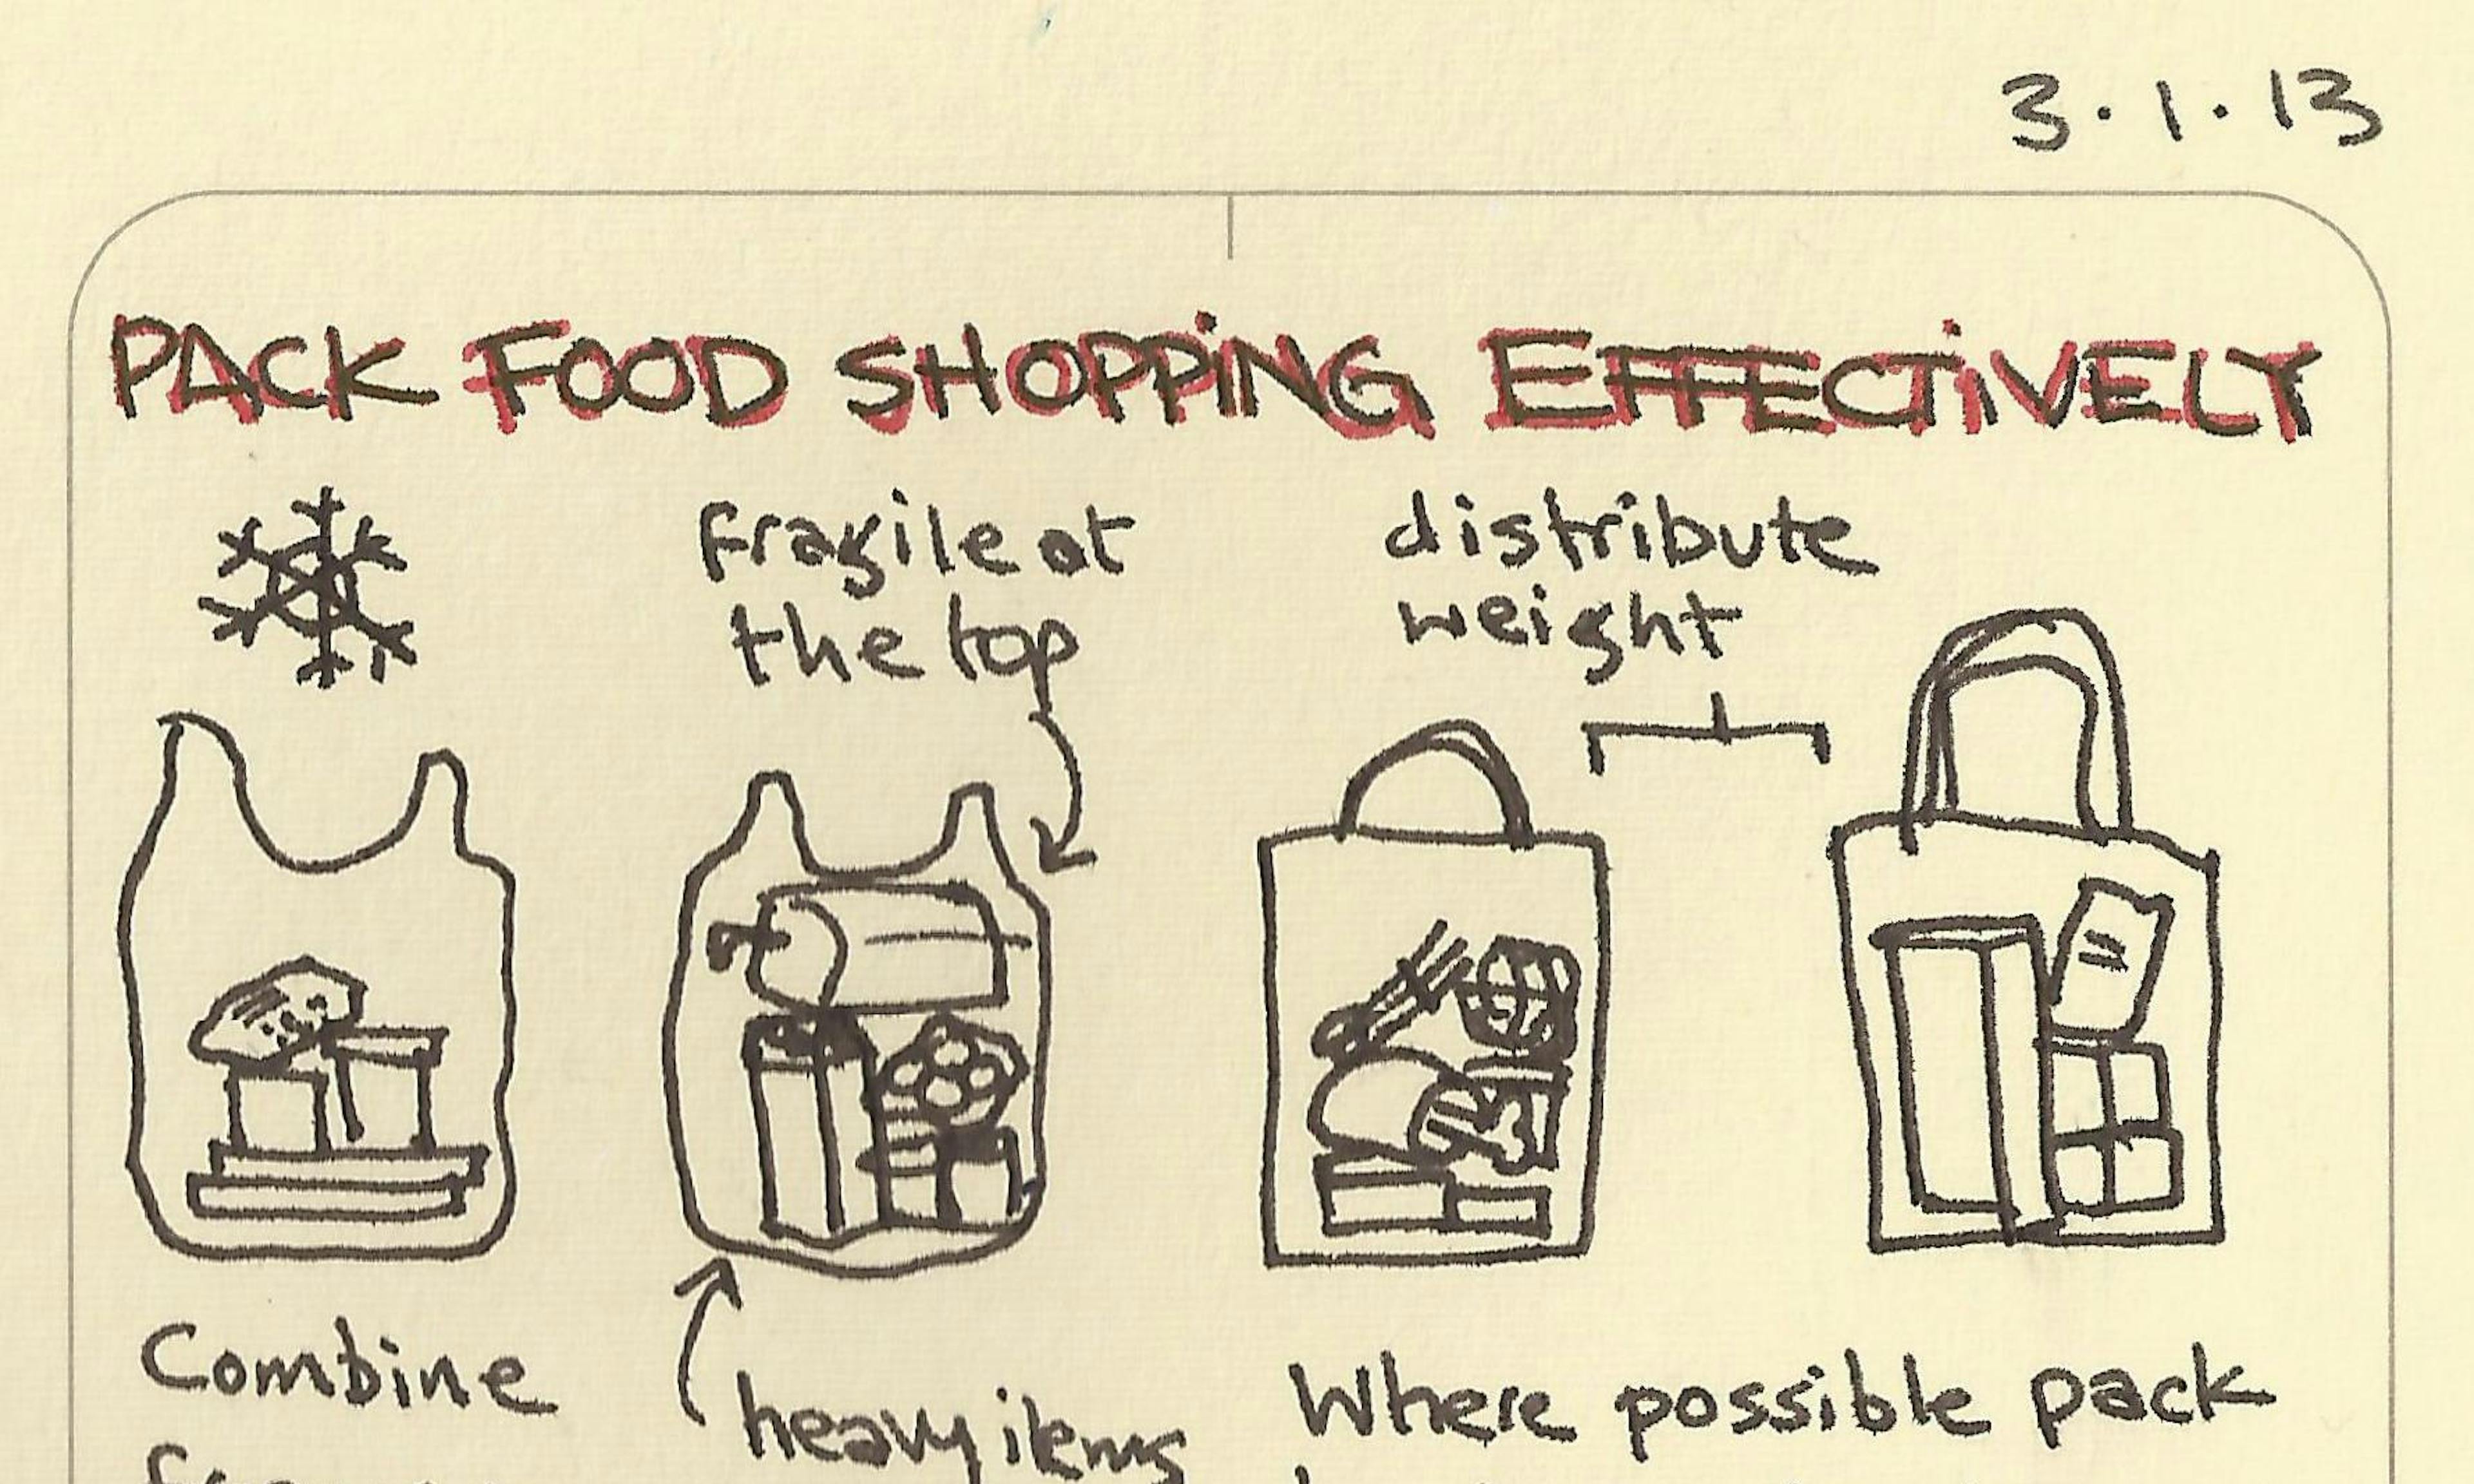 3.1.13
PACK FOOD SHOPPiNG EFFECTiVELY
fragile at
the top
distribute
weight
Combine
heavy items
Where possible pack